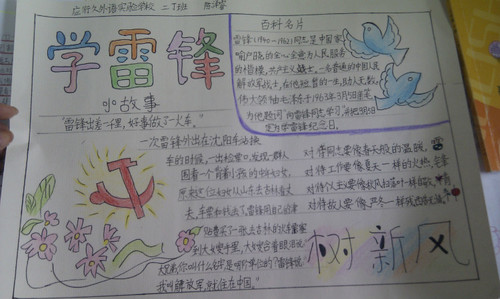 应行久外语实验学校 二丁班
学雷锋
小故事
百科名片
雷锋(1940-1962)同志是中国家
喻户晓的全心全意为人民服务
的楷模,共产主义战士,一名普通的中国人民
解放军战士,在他短暂的一生助人无数,
伟大领袖毛泽东于1963年3月5日亲笔
为他题词"向雷锋同志学习",并把3月5日
定为学雷锋纪念日。
"雷锋出差一千里,好事做了一火车。"
一次雷锋外出在沈阳车站换
车的时候,一出检票口,发现一群人
围着一个背着小孩的中年妇女,
原来这位妇女从山东去吉林看丈
夫,车票和钱丢了,雷锋用自己的津
贴费买了一张去吉林的火车票塞
到大嫂手里,大嫂含着眼泪说:"
大兄弟,你叫什么名字,是哪个单位的?"雷锋说:"
我叫解放军,就住在中国。"
对待同志要像春天般的温暖,
对待工作要像夏天一样的火热,
对待个人主义要像秋风扫落叶一样
对待敌人要像严冬一样残酷无情
树新风